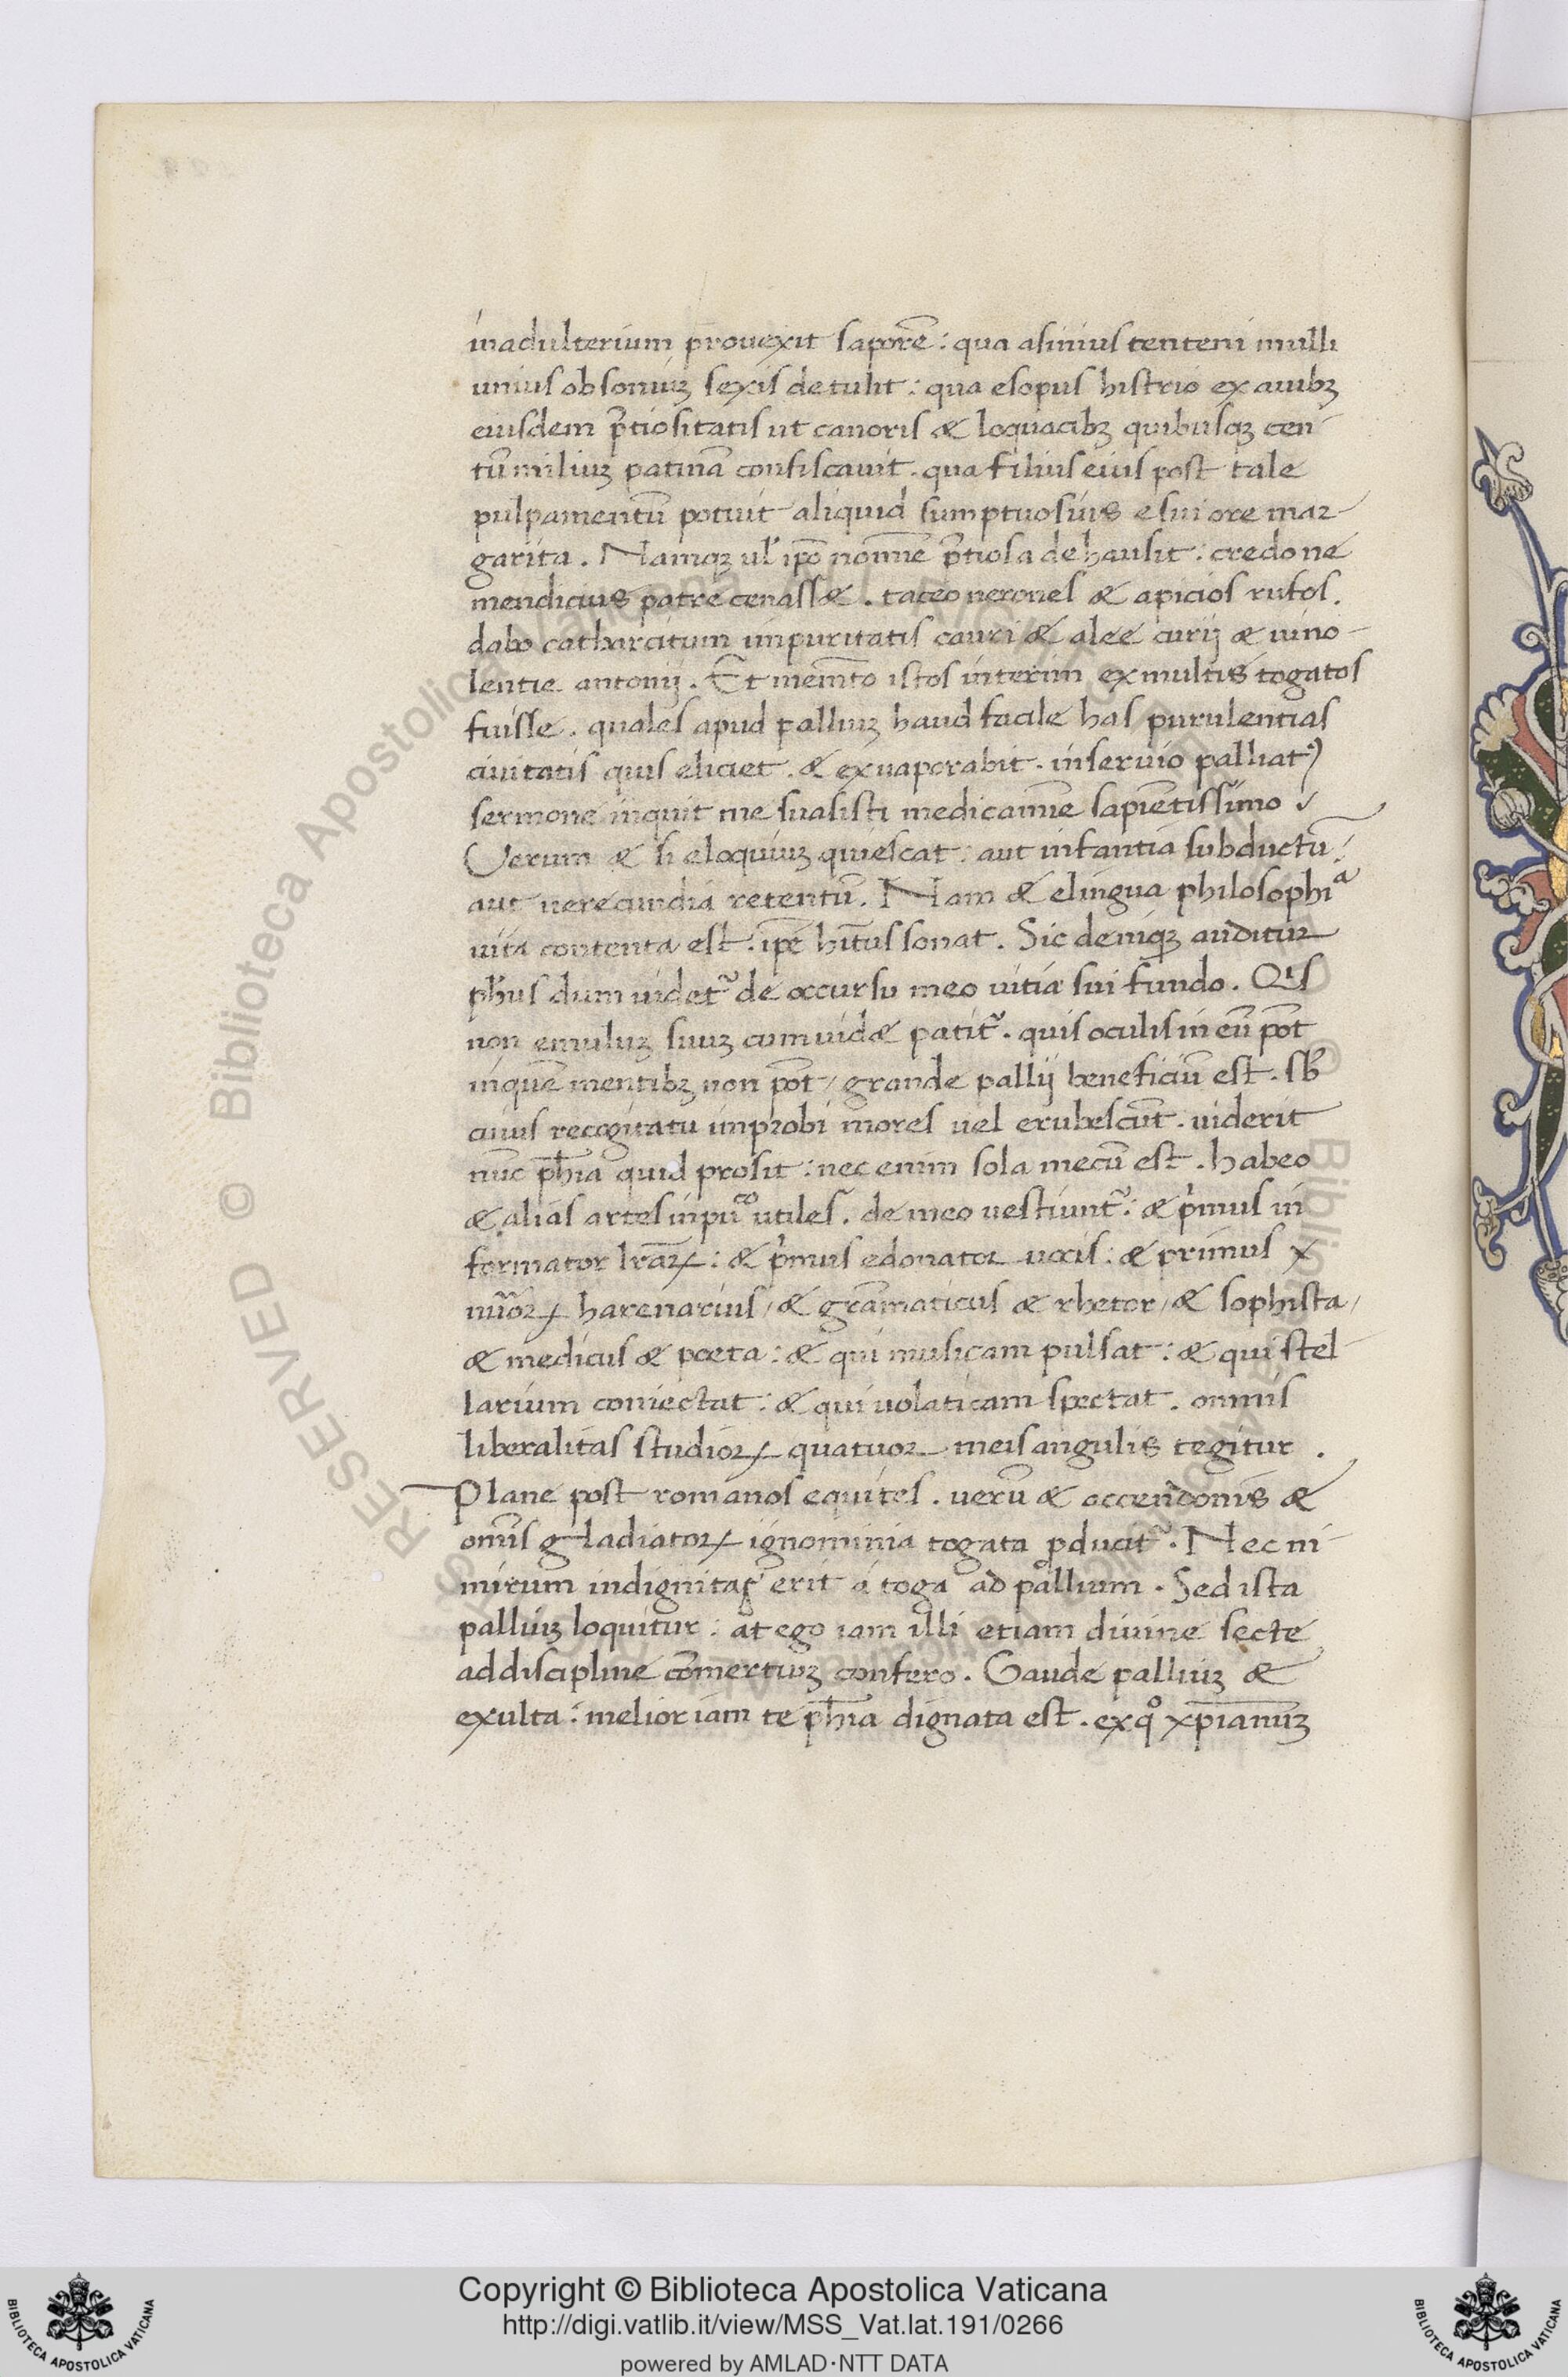 inadulterium prouexit saporē: qua asinius tenteni mulli
unius obsoniuꝫ sexis detulit: qua esopus histrio ex auibꝫ
eiusdem p̄tiositatis ut canoris & loquacibꝫ quibusqꝫ cen-
tū miliuꝫ patinā confiscauit. qua filius eius post tale
pulpamentū potuit aliquid sumptuosius esui ore mar-
garita. Namqꝫ ul' ip̄o nomīe p̄tiosa dehausit: credo ne
mendicius patre cenass&. taceo nerones & apicios rufos.
dabo catharcitum inpuritatis cauri & alee curij & uino-
lentie antonij. Et mem̄to istos interim ex multis togatos
fuisse. quales apud palliuꝫ haud facile has purulentias
ciuitatis quis eliciet. & exuaporabit. inseruio palliatꝰ
sermone inquit me suasisti medicamīe sapiētissimo
Uerum & si eloquiuꝫ quiescat: aut infantia subductū:
aut uerecundia retentū. Nam & elingua philosophiᵃ
uita contenta est. ip̄e hīt͂us sonat. Sic deniqꝫ auditur
ph̄us dum uidet᷑ de occursu meo uitia sui fundo. Qͥs
non emuluꝫ suuꝫ cum uid& patit᷑. quis oculis in eū pōt
in quē mentibꝫ non pōt, grande pallij beneficiū est. sb̄
cuius recogitatu improbi mores uel erubescūt. uiderit
nūc ph̄ia quid prosit: nec enim sola mecū est. habeo
& alias artes in pū̄co utiles. de meo uestiunt᷑: & pͥmus in
formator lr̄aꝝ: & pͥmus edonator uocis: & primus x
nūoꝝ harenarius, & grāmaticus & rhetor, & sophista,
& medicus & poeta: & qui musicam pulsat: & qui stel-
larium coniectat: & qui uolaticam spectat. omnis
liberalitas studioꝝ quatuor meis angulis tegitur.
Plane post romanos equites. uerū & accendonis &
om̄is gladiatoꝝ ignominia togata ꝓducit᷑. Nec ni-
mirum indignitas erit a toga ad pallium. Sed ista
palliuꝫ loquitur: at ego iam illi etiam diuine secte
ad discipline cōmertiuꝫ confero. Gaude palliuꝫ &
exulta: melior iam te ph̄ia dignata est. ex qͦ xp̄ianuꝫ
Copyright © Biblioteca Apostolica Vaticana
http://digi.vatlib.it/view/MSS_Vat.lat.191/0266
powered by AMLAD·NTT DATA